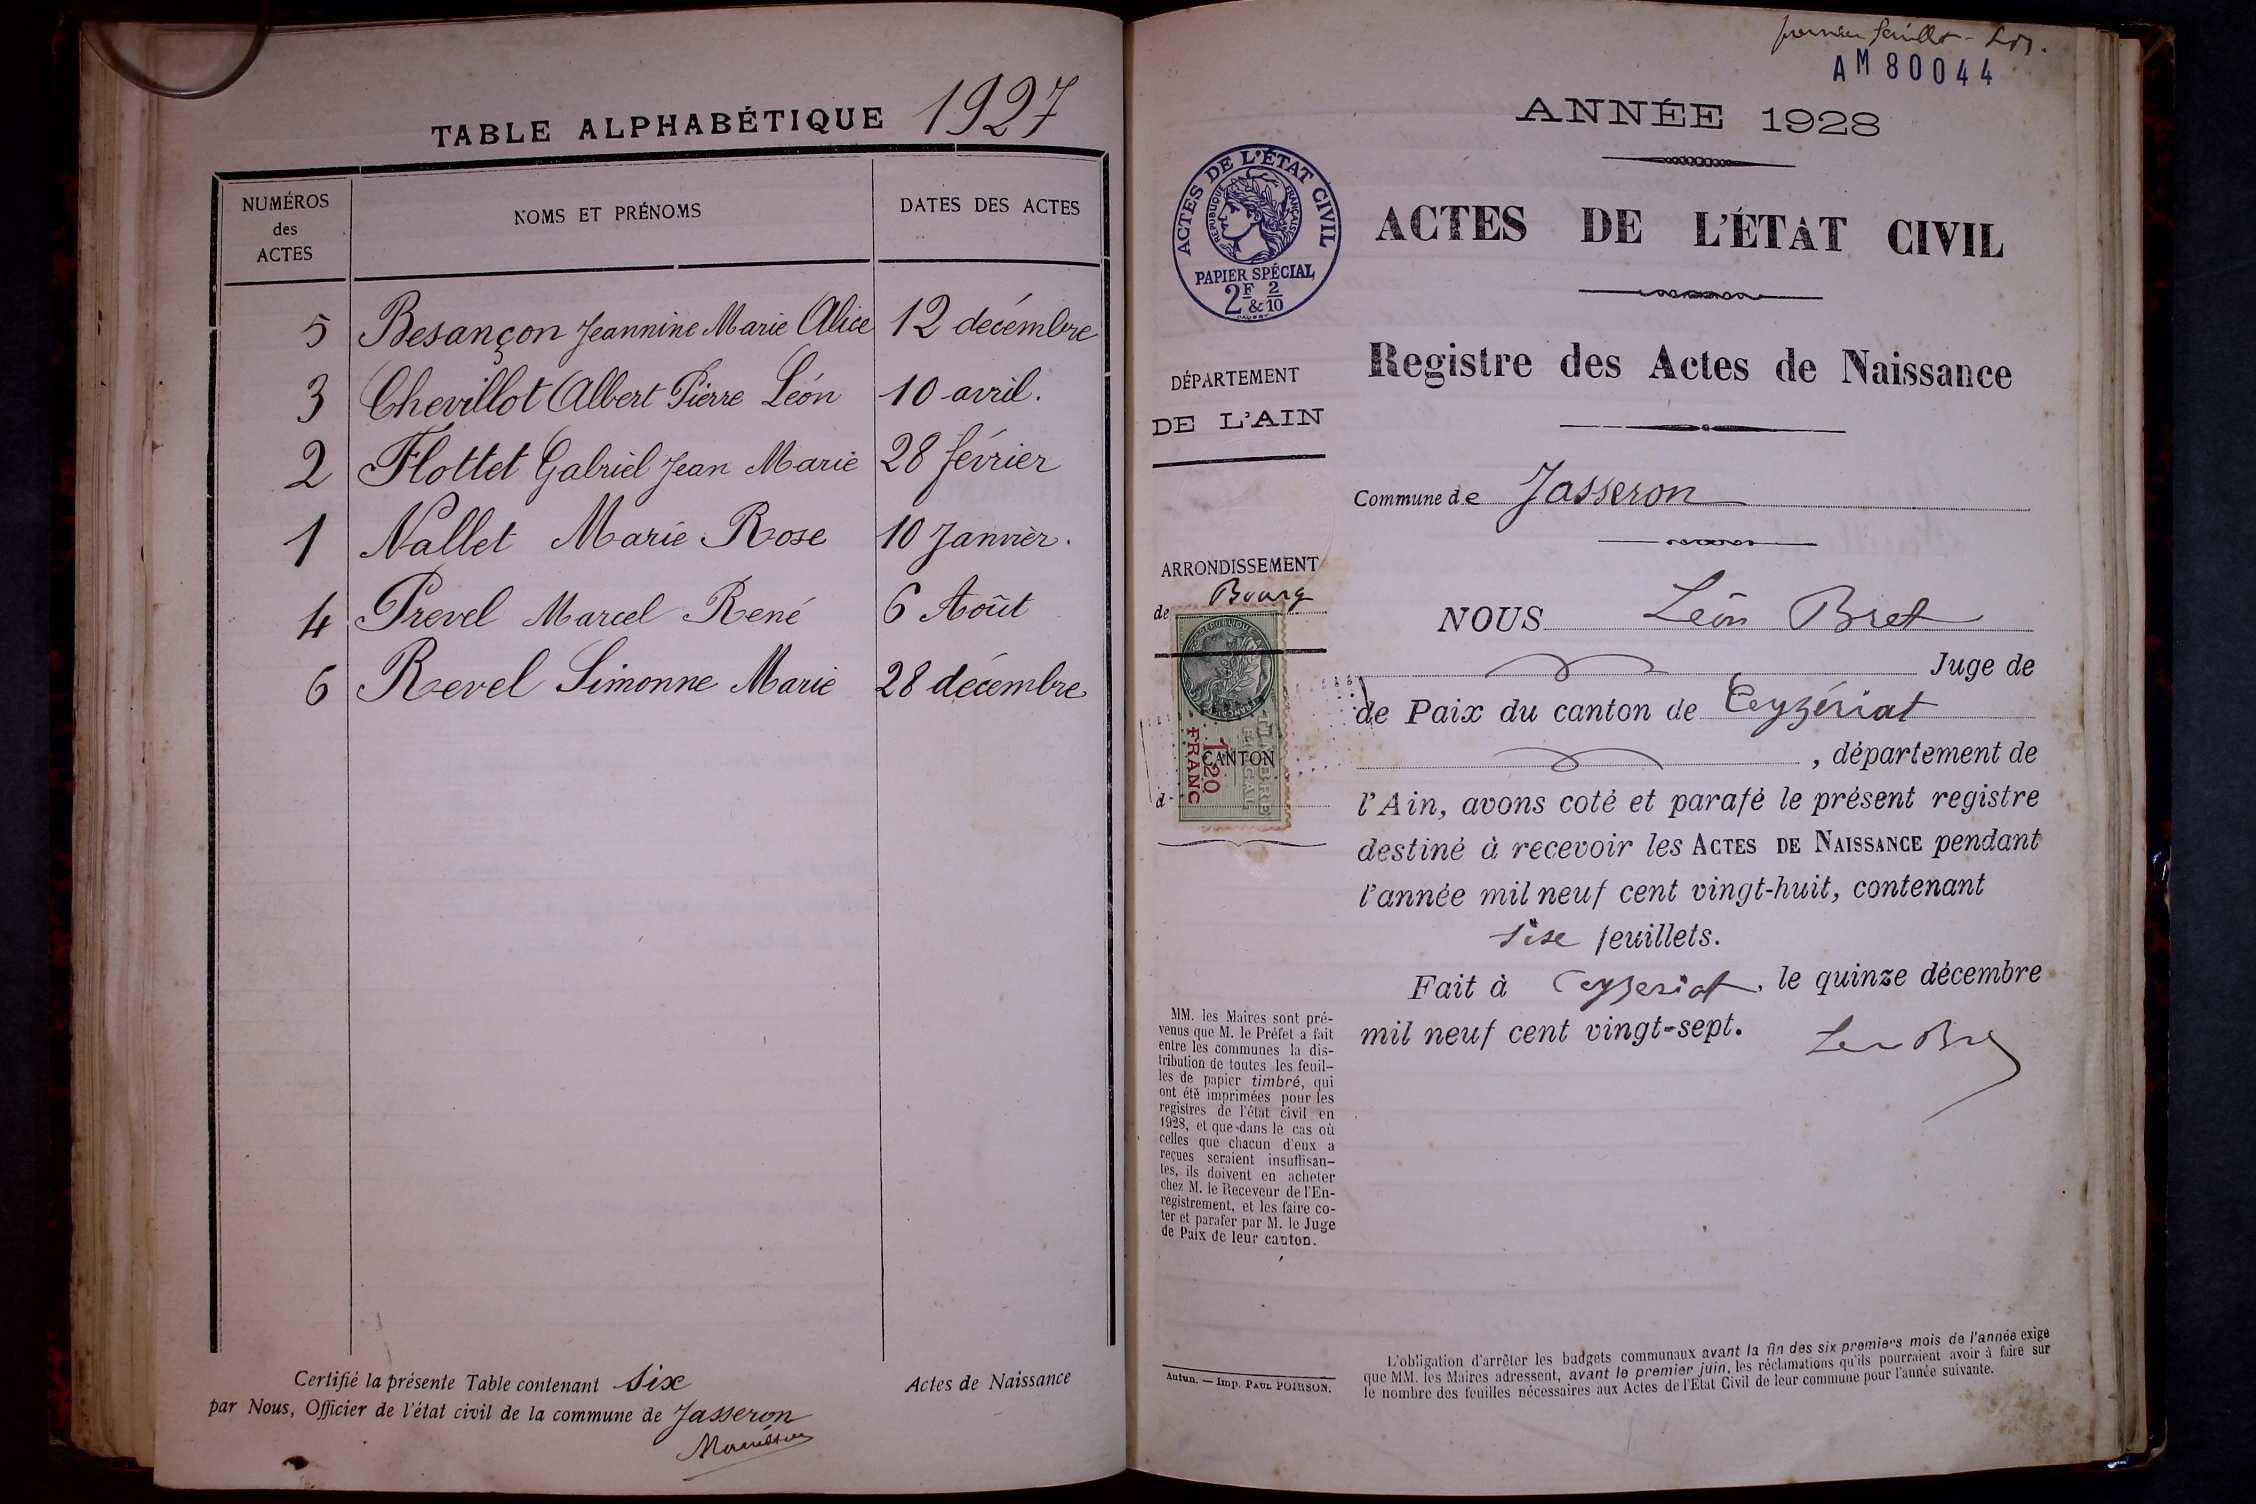 TABLE ALPHABÉTIQUE 1927
NUMÉROS des ACTES NOMS ET PRÉNOMS DATES DES ACTES
5 Besançon Jeannine Marie Alice 12 décembre
3 Chevillot Albert Pierre Léon 10 avril.
2 Flottet Gabriel Jean Marie 28 février
1 Nallet Marie Rose 10 Janvier.
4 Prevel Marcel René 6 Août
6 Revel Simonne Marie 28 décembre
Certifié la présente Table contenant six Actes de Naissance
par Nous, Officier de l'état civil de la commune de Jasseron
premier feuillet
AM80044
ANNÉE 1928
ACTES DE L'ÉTAT CIVIL
RÉPUBLIQUE FRANÇAISE
PAPIER SPÉCIAL
2F & 2/10
ACTES DE L'ÉTAT CIVIL
Registre des Actes de Naissance
DÉPARTEMENT
DE L'AIN
Commune de Jasseron
ARRONDISSEMENT
de Bourg
CANTON
d
TIMBRE
FISCAL
1.20
FRANC
NOUS Léon Bret
Juge de
de Paix du canton de Ceyzériat
, département de
l'Ain, avons coté et parafé le présent registre
destiné à recevoir les ACTES DE NAISSANCE pendant
l'année mil neuf cent vingt-huit, contenant
six feuillets.
Fait à Ceyzeriat, le quinze décembre
mil neuf cent vingt-sept.
MM. les Maires sont pré-
venus que M. le Préfet a fait
entre les communes la dis-
tribution de toutes les feuil-
les de papier timbré, qui
ont été imprimées pour les
registres de l'état civil en
1928, et que dans le cas où
celles que chacun d'eux a
reçues seraient insuffisan-
tes, ils doivent en acheter
chez M. le Receveur de l'En-
registrement, et les faire co-
ter et parafer par M. le Juge
de Paix de leur canton.
Autun. — Imp. PAUL POIRSON.
L'obligation d'arrêter les budgets communaux avant la fin des six premiers mois de l'année exige
que MM. les Maires adressent, avant le premier juin, les réclamations qu'ils pourraient avoir à faire sur
le nombre des feuilles nécessaires aux Actes de l'État Civil de leur commune pour l'année suivante.